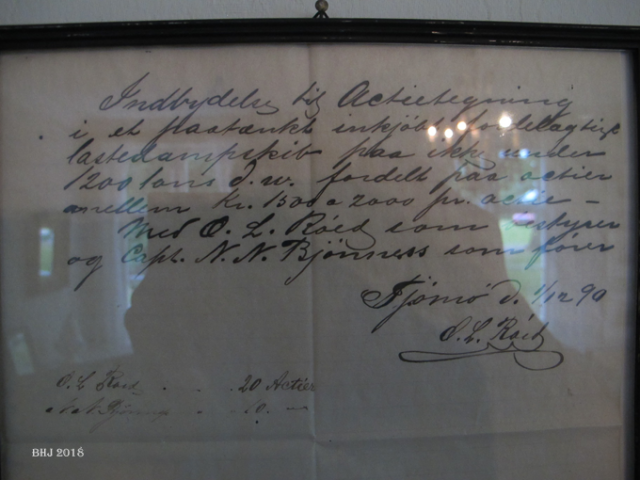 Indbydelse til Actietegning
i et paatænkt inkjöbt fordelagtigt
lastedampskib paa ikke under
1200 tons d.w. fordelt paa actier
mellem kr. 1500 a 2000 pr. actie –
Med O. L. Röed som bestyrer
og Capt. N. N. Bjönness som förer
Tjömö d. 1/12 90
O. L. Röed
O. L. Röed . . . 20 Actier
N N Bjönness . . 10 . —
BHJ 2018